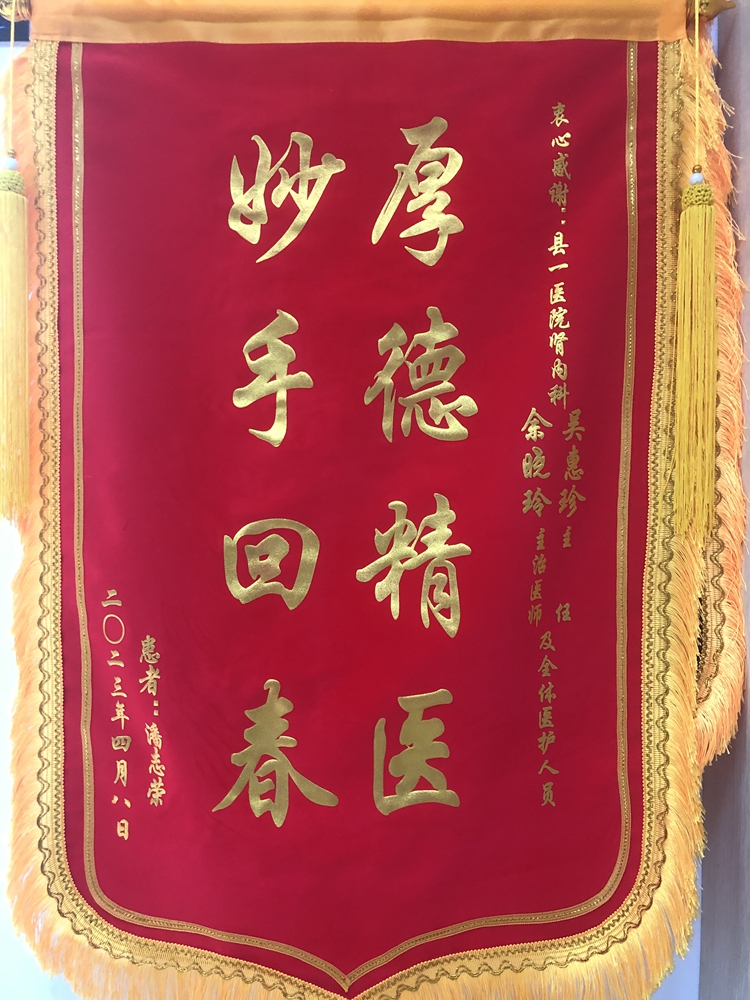 衷心感谢：县一医院肾内科
吴惠珍 主 任
余晓玲 主治医师
及全体医护人员
厚德精医
妙手回春
患者：潘志荣
二〇二三年四月八日